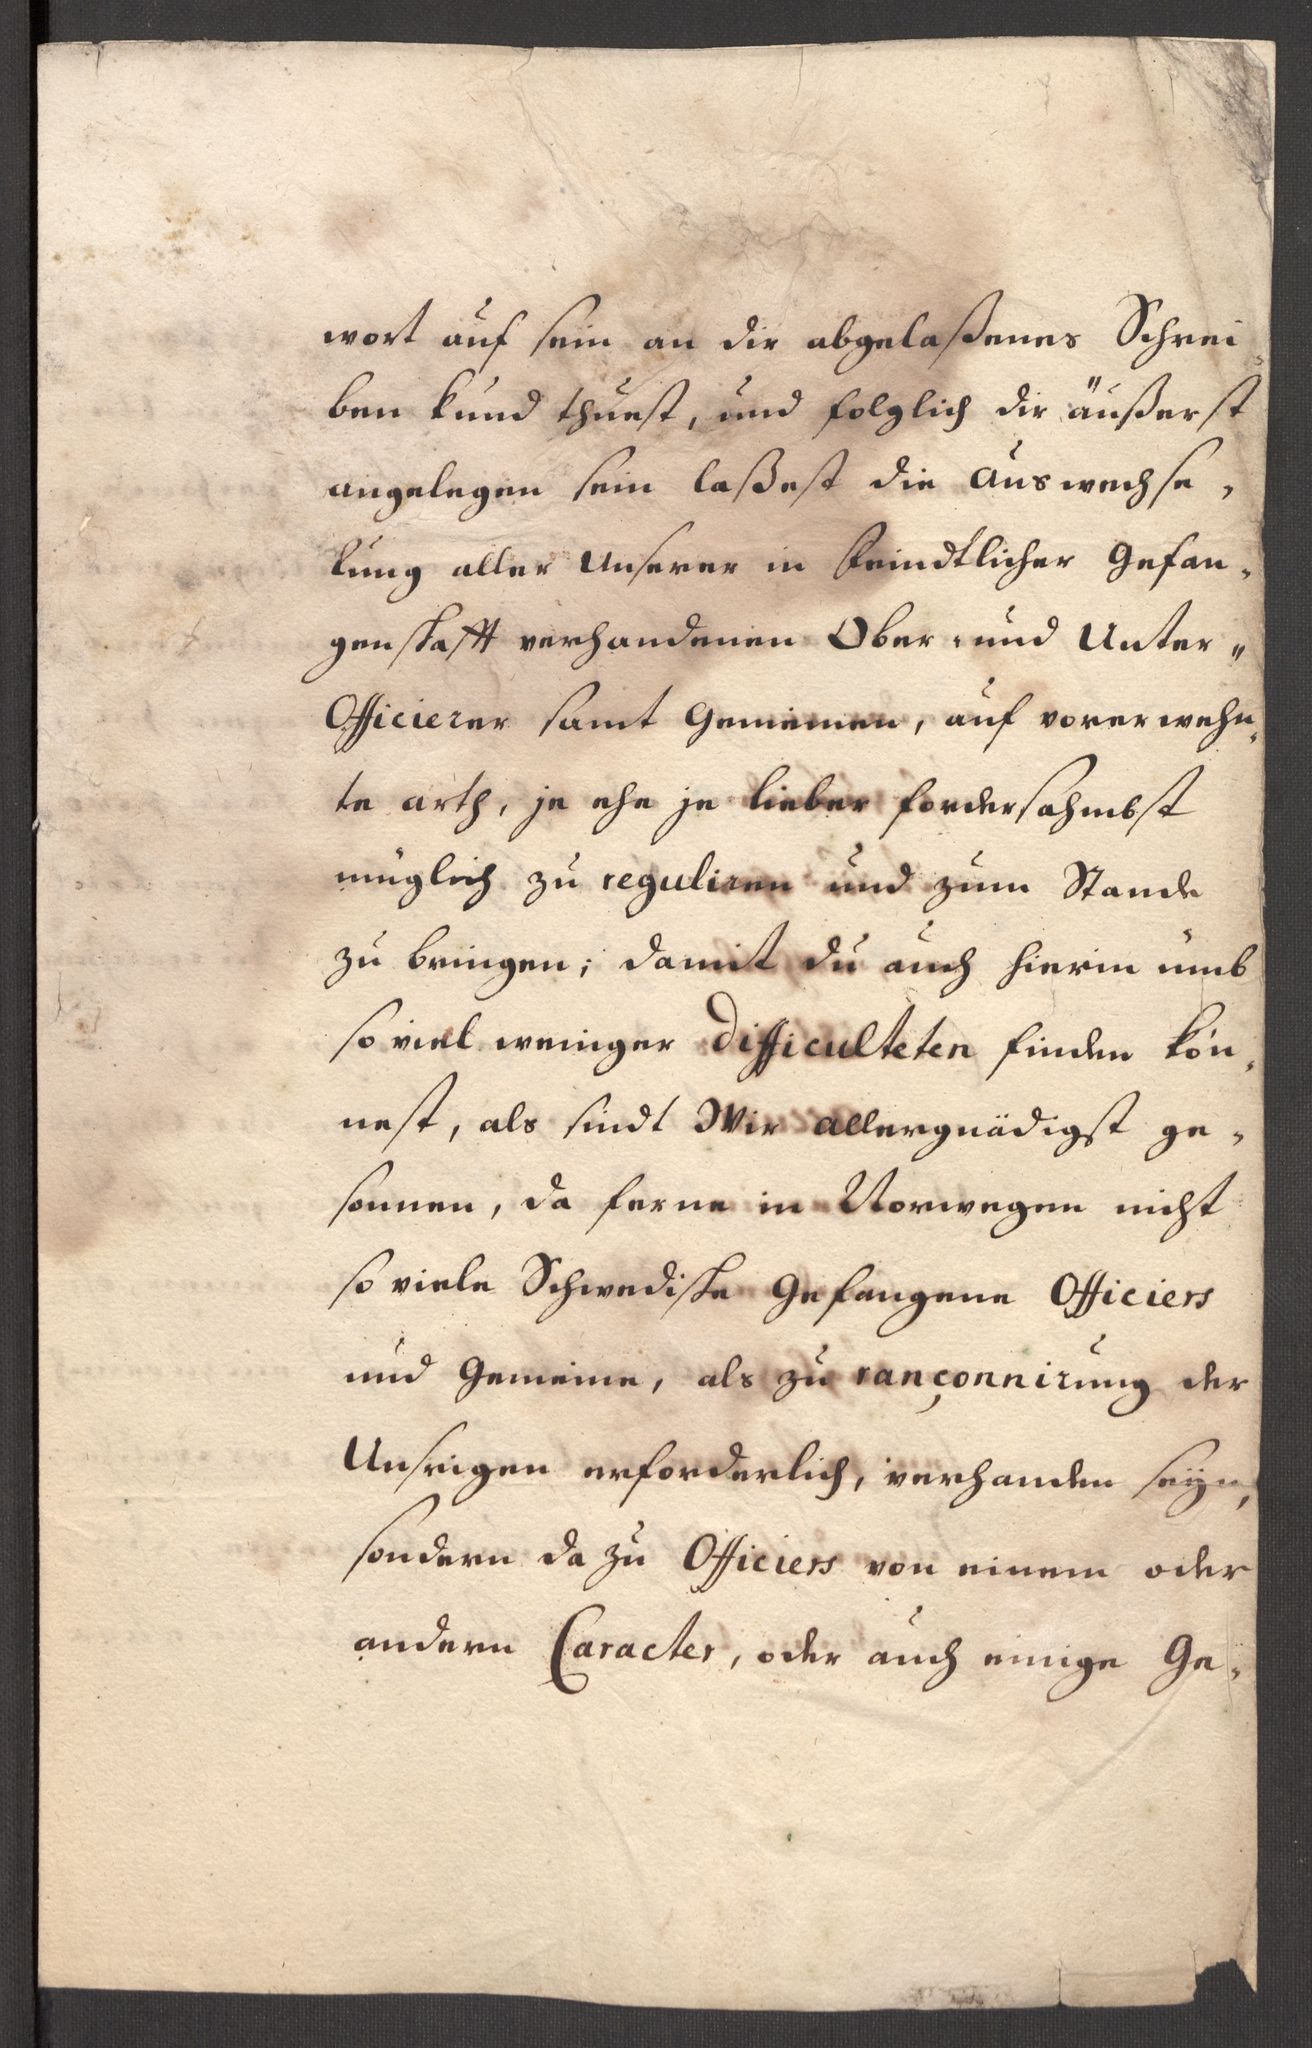 wort auf sein an dir abgelaßenes Schrei
ben kund thuest, und folglich dir äußerst
angelegen sein laßest die Auswechse,
lung aller Unserer in feindtlicher Gefan,
genskafft verhandenen Ober, und Unter"
Officierer samt Gemeinen, auf vorerwehn,
te arth, je ehe je lieber fordersahmbst
müglich zu reguliren und zum Stande
zu bringen; damit du auch hierin umb
so viel weniger Difficulteten finden kön,
nest, als sindt Wir allergnädigst ge,
sonnen, da ferne in Norwegen nicht
so viele Schwediske Gefangene Officiers
und Gemeine, als zu rançonnirung der
Unsrigen erforderlich, verhanden seÿn,
sondern da zu Officiers von einem oder
andern Caracter, oder auch einige Ge,